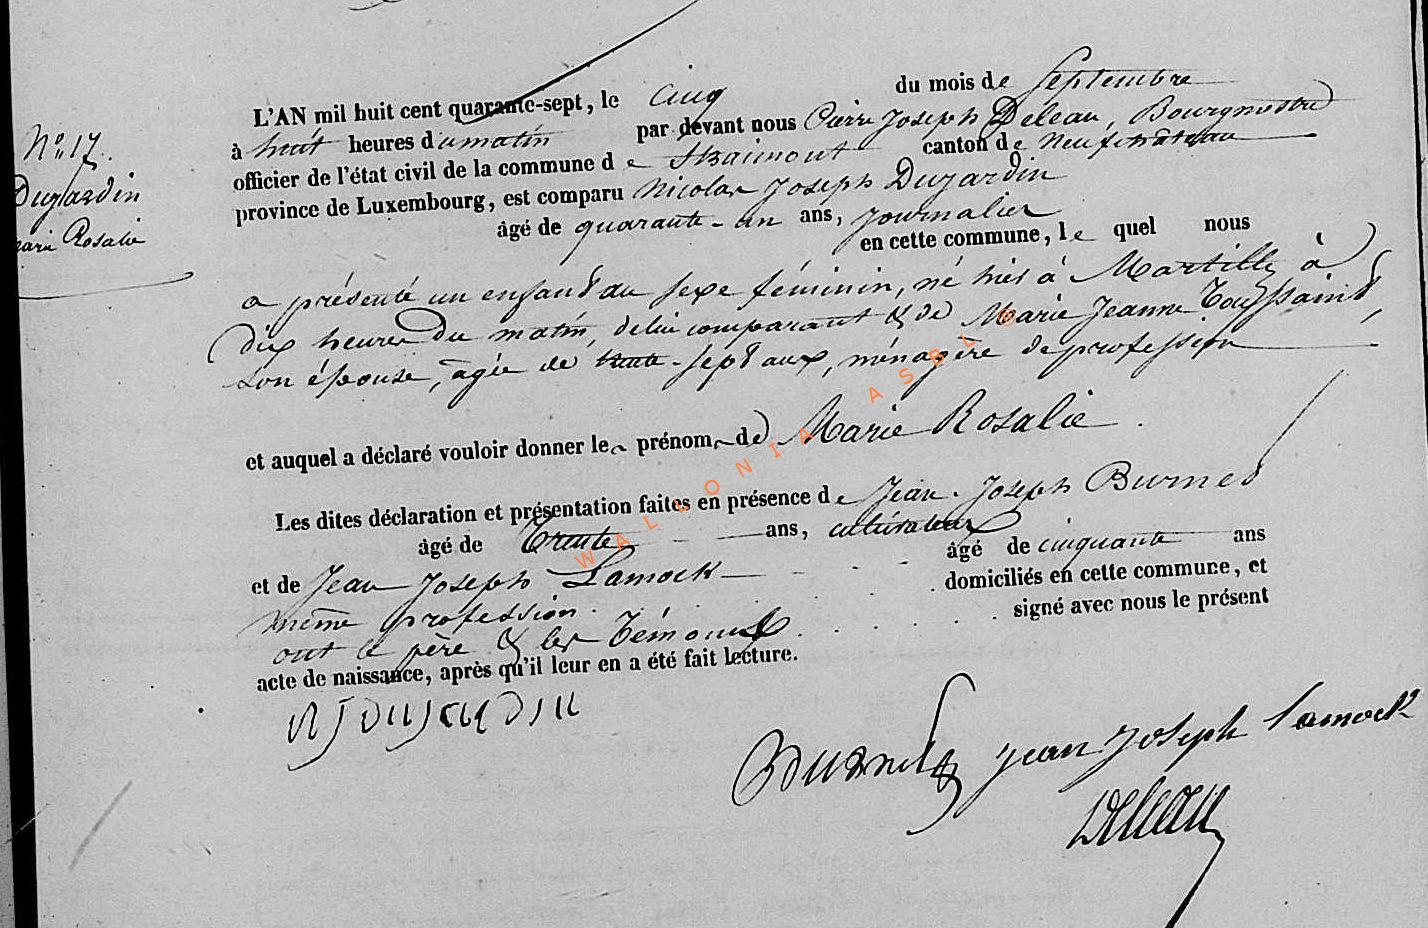 N° 17.
Dujardin
Marie Rosalie
L'AN mil huit cent quarante-sept, le cinq du mois de Septembre
à huit heures du matin par devant nous Pierre Joseph Déleau, Bourgmestre
officier de l'état civil de la commune de Straimont canton de Neufchâteau
province de Luxembourg, est comparu Nicolas Joseph Dujardin
âgé de quarante-un ans, journalier
en cette commune, lequel nous
a présenté un enfant du sexe féminin, né hier à Martilly à
dix heures du matin, de lui comparant & de Marie Jeanne Toussaint,
son épouse, âgée de trente-sept ans, ménagère de profession
et auquel a déclaré vouloir donner les prénoms de Marie Rosalie.
Les dites déclaration et présentation faites en présence de Jean-Joseph Burnet
âgé de Trente ans, cultivateur
et de Jean Joseph Lamock âgé de cinquante ans
même profession. domiciliés en cette commune, et
ont le père & les témoins signé avec nous le présent
acte de naissance, après qu'il leur en a été fait lecture.
NJ DUJARDIN
Burnet Jean Joseph lamock
Déleau
WALLONIA ASBL